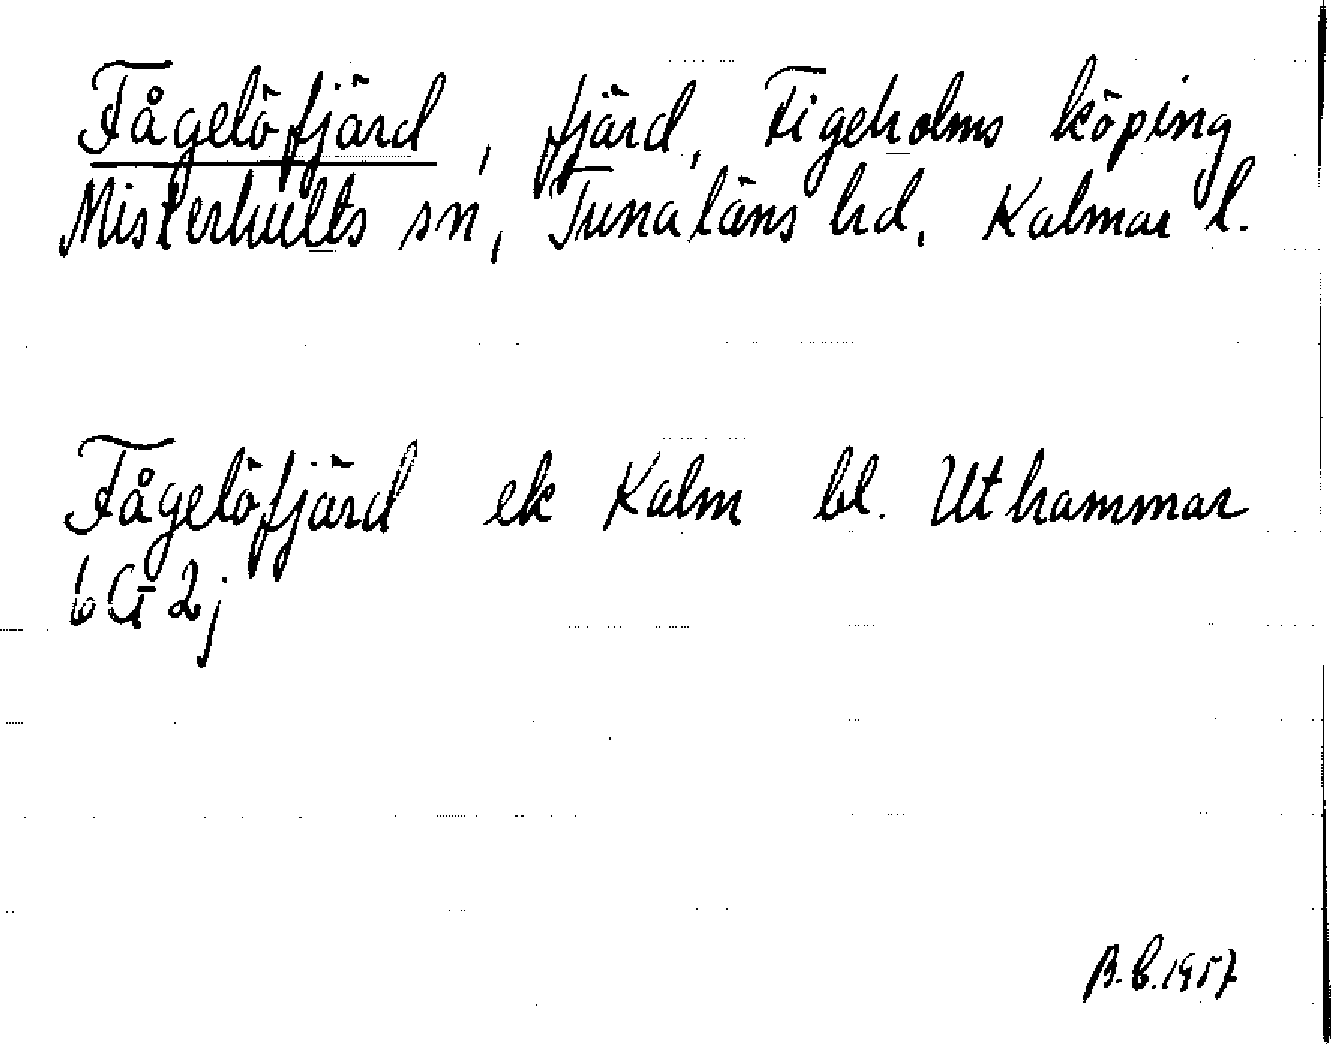 Fågelöfjärd, fjärd, Figeholms köping
Misterhults sn, Tunaläns hd, Kalmar l.
Fågelöfjärd ek Kalm bl. Uthammar
6G 2j
B.b.1957